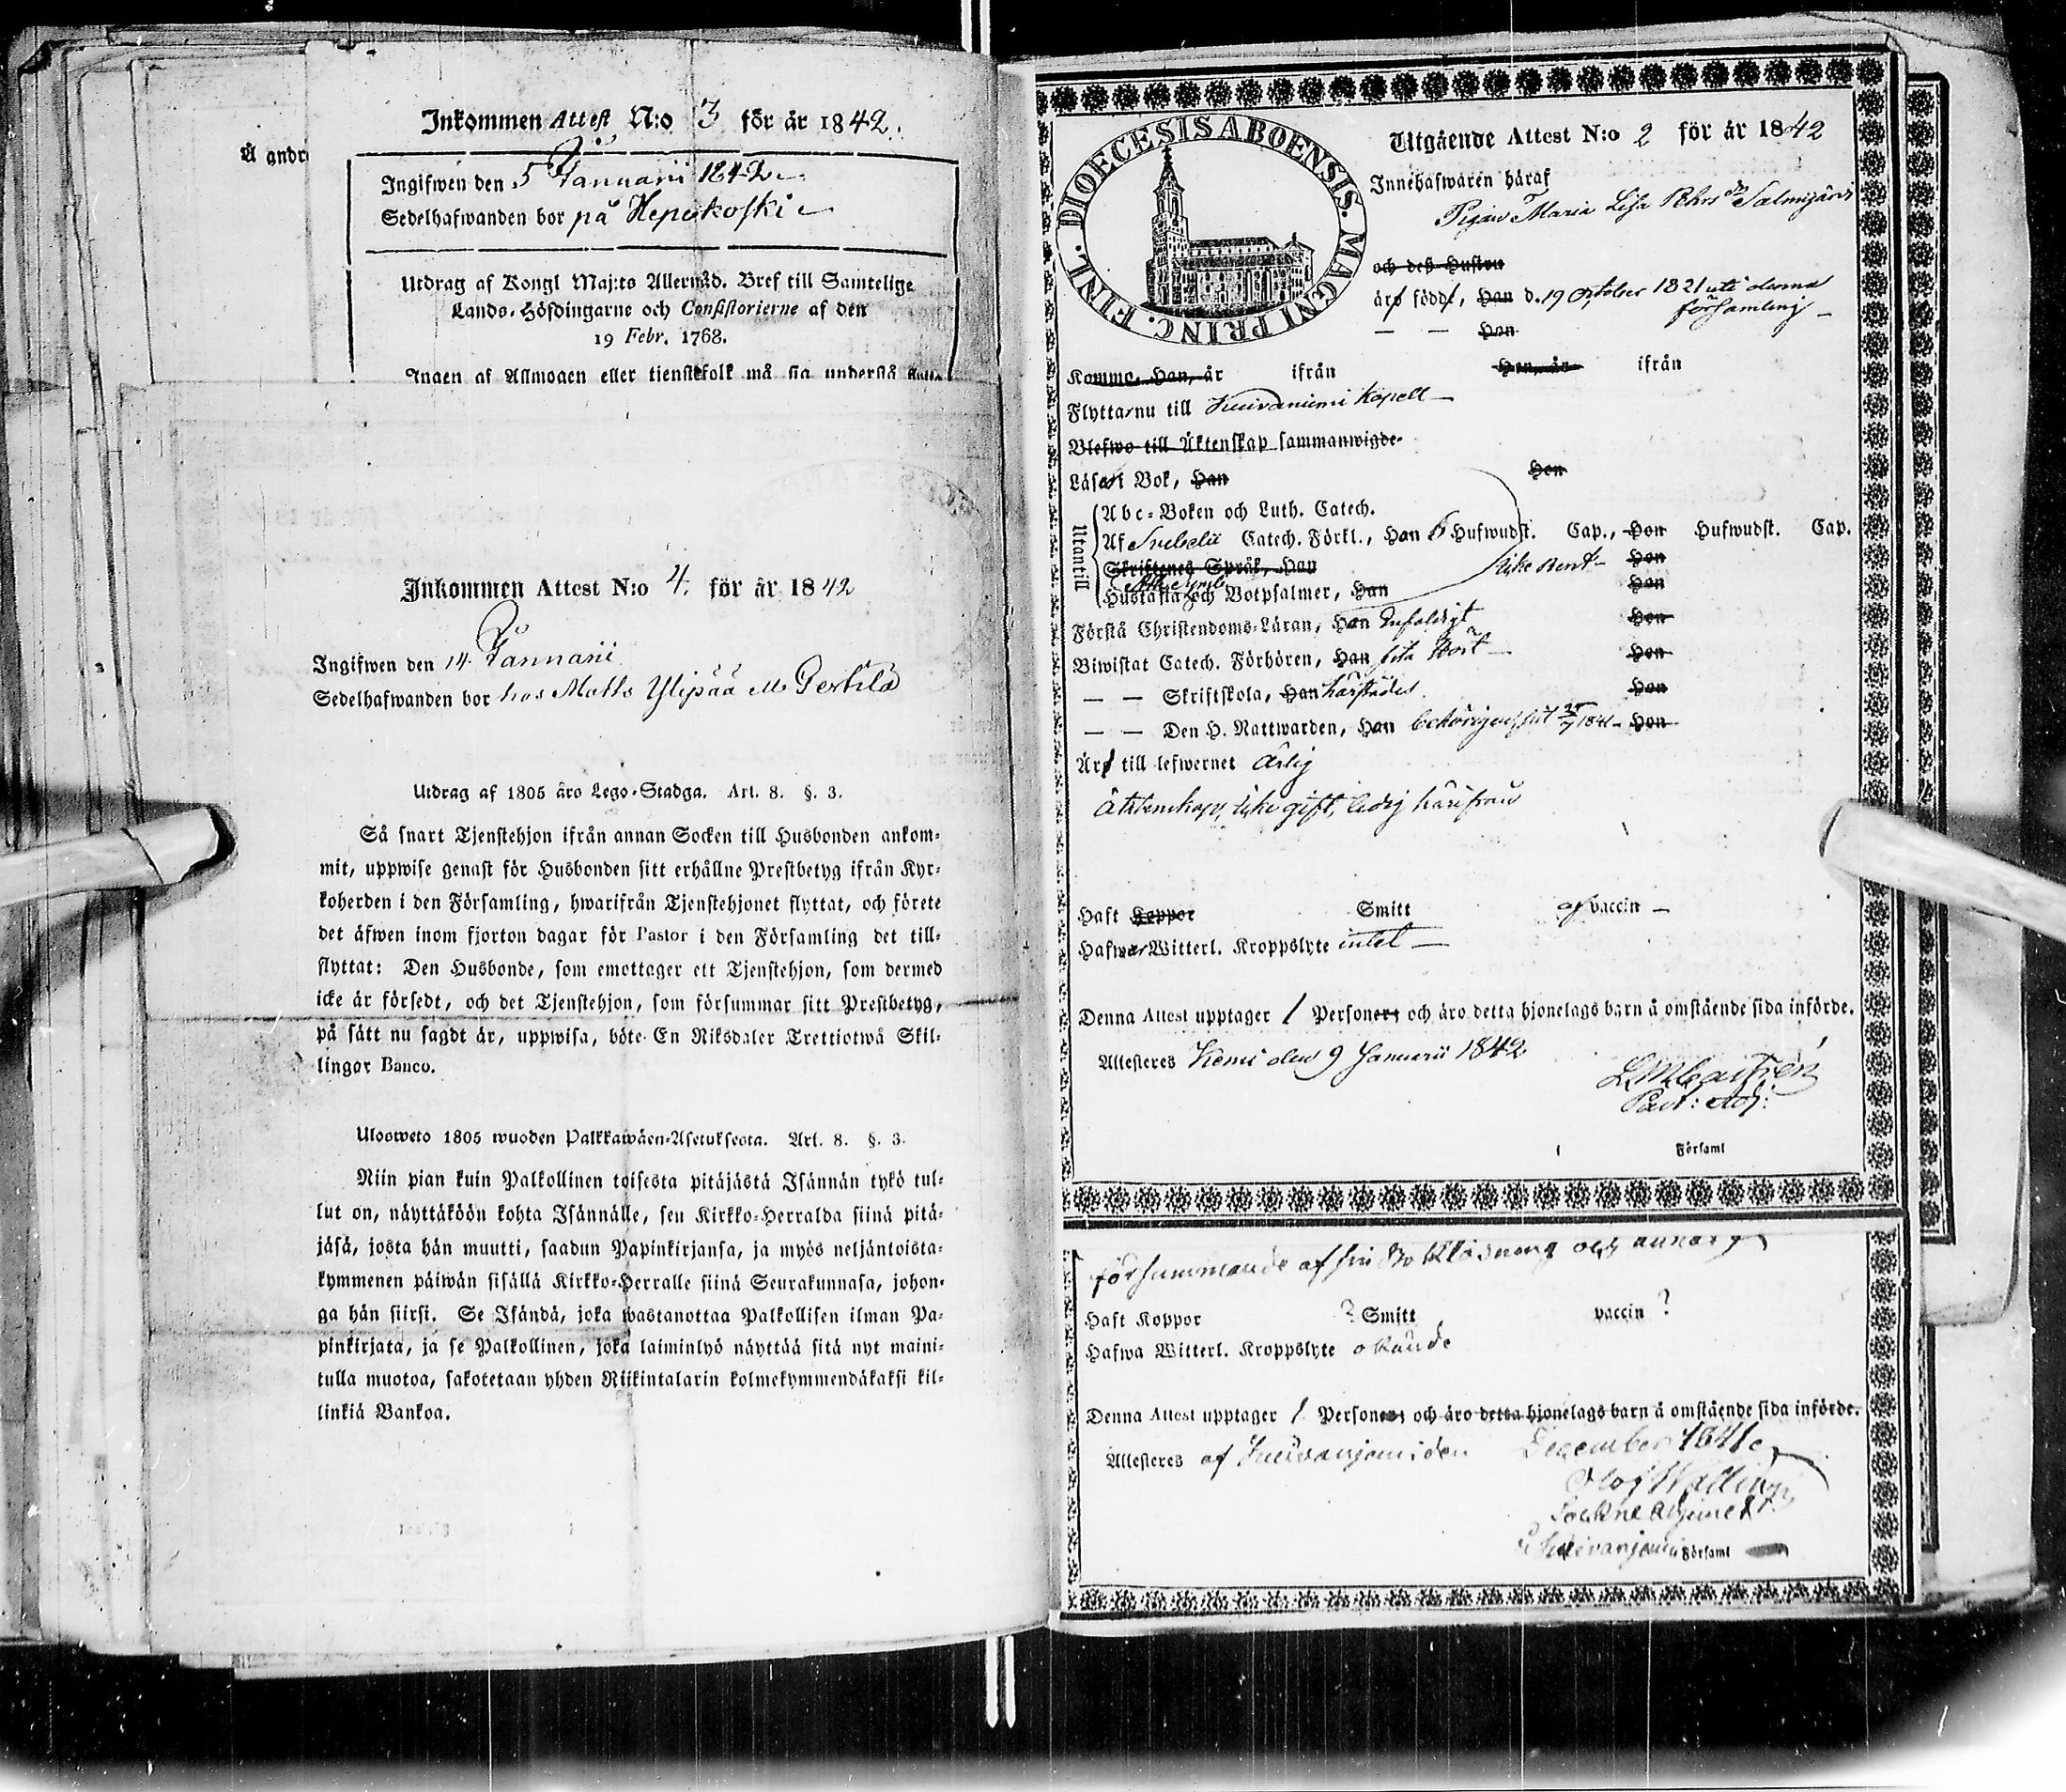 Å andr
Inkommen Attest N:o 3 för år 1842.
Ingifwen den 5 Januarii 1842
Sedelhafwanden bor på Hepokoski
Utdrag af Kongl Maj:ts Allernåd. Bref till Samtelige
Lands-Höfdingarne och Consistorierne af den
19 Febr. 1768.
Ingen af Allmogen eller tienstefolk må sig understå
Inkommen Attest N:o 4. för år 1842
Ingifwen den 14 Januarii
Sedelhafwanden bor hos Matts Ylipää
Utdrag af 1805 års Lego-Stadga. Art. 8. §. 3.
Så snart Tjenstehjon ifrån annan Socken till Husbonden ankom-
mit, uppwise genast för Husbonden sitt erhållne Prestbetyg ifrån Kyr-
koherden i den Församling, hwarifrån Tjenstehjonet flyttat, och förete
det äfwen inom fjorton dagar för Pastor i den Församling det till-
flyttat: Den Husbonde, som emottager ett Tjenstehjon, som dermed
icke är försedt, och det Tjenstehjon, som försummar sitt Prestbetyg,
på sätt nu sagdt är, uppwisa, böte En Riksdaler Trettiotwå Skil-
lingar Banco.
Ulosweto 1805 wuoden Palkkawäen-Asetuksesta. Art. 8. §. 3.
Niin pian kuin Palkollinen toisesta pitäjästä Isännän tykö tul-
lut on, näyttäköön kohta Isännälle, sen Kirkko-Herralda siinä pitä-
jäsä, josta hän muutti, saadun Papinkirjansa, ja myös neljäntoista-
kymmenen päiwän sisällä Kirkko-Herralle siinä Seurakunnasa, johon-
ga hän siirsi. Se Isändä, joka wastanottaa Palkollisen ilman Pa-
pinkirjata, ja se Palkollinen, joka laiminlyö näyttää sitä nyt maini-
tulla muotoa, sakotetaan yhden Riikintalarin kolmekymmendäkaksi kil-
linkiä Bankoa.
DIOECESIS ABOENSIS. MAGNI PRINC. FINL.
Utgående Attest N:o 2 för år 1842
Innehafwaren häraf
Pigan Maria Lisa Pehrs dr Salmijärvi
och dess Hustru
äro födde, Han d. 19 October 1821 uti denna
församling
— — Hon
Komme, Han, år ifrån Hon, år ifrån
Flytta nu till Kuivaniemi Kapell
Blefwo till Äktenskap sammanwigde
Läsa i Bok, Han Hon
Utantill
Abc-Boken och Luth. Catech.
Af Svebelii Catech. Förkl., Han 6 Hufwudst. Cap., Hon Hufwudst. Cap.
Skriftenes Språk, Han Hon
Hustafla och Botpsalmer, Han Hon
Förstå Christendoms-Läran, Han Enfaldigt Hon
Biwistat Catech. Förhören, Han Hon
— — Skriftskola, Han härstädes Hon
— — Den H. Nattwarden, Han behörigen 1841 Hon
Äro till lefwernet ärlig
äktenskap, icke gift, ledig härifrån
Haft Koppor Smitt af vaccin
Hafwa Witterl. Kroppslyte intet
Denna Attest upptager 1 Personer och äro detta hjonelags barn å omstående sida införde.
Attesteres Kemi den 9 Januarii 1842
L M Castrén
Past: Adj:
Församl
försummande af sin
Haft Koppor ? Smitt vaccin ?
Hafwa Witterl. Kroppslyte okände
Denna Attest upptager 1 Personer och äro detta hjonelags barn å omstående sida införde.
Attesteres af Kuivanjemi den December 1841
Sockne Adjunckt
Kuivanjemi Församl